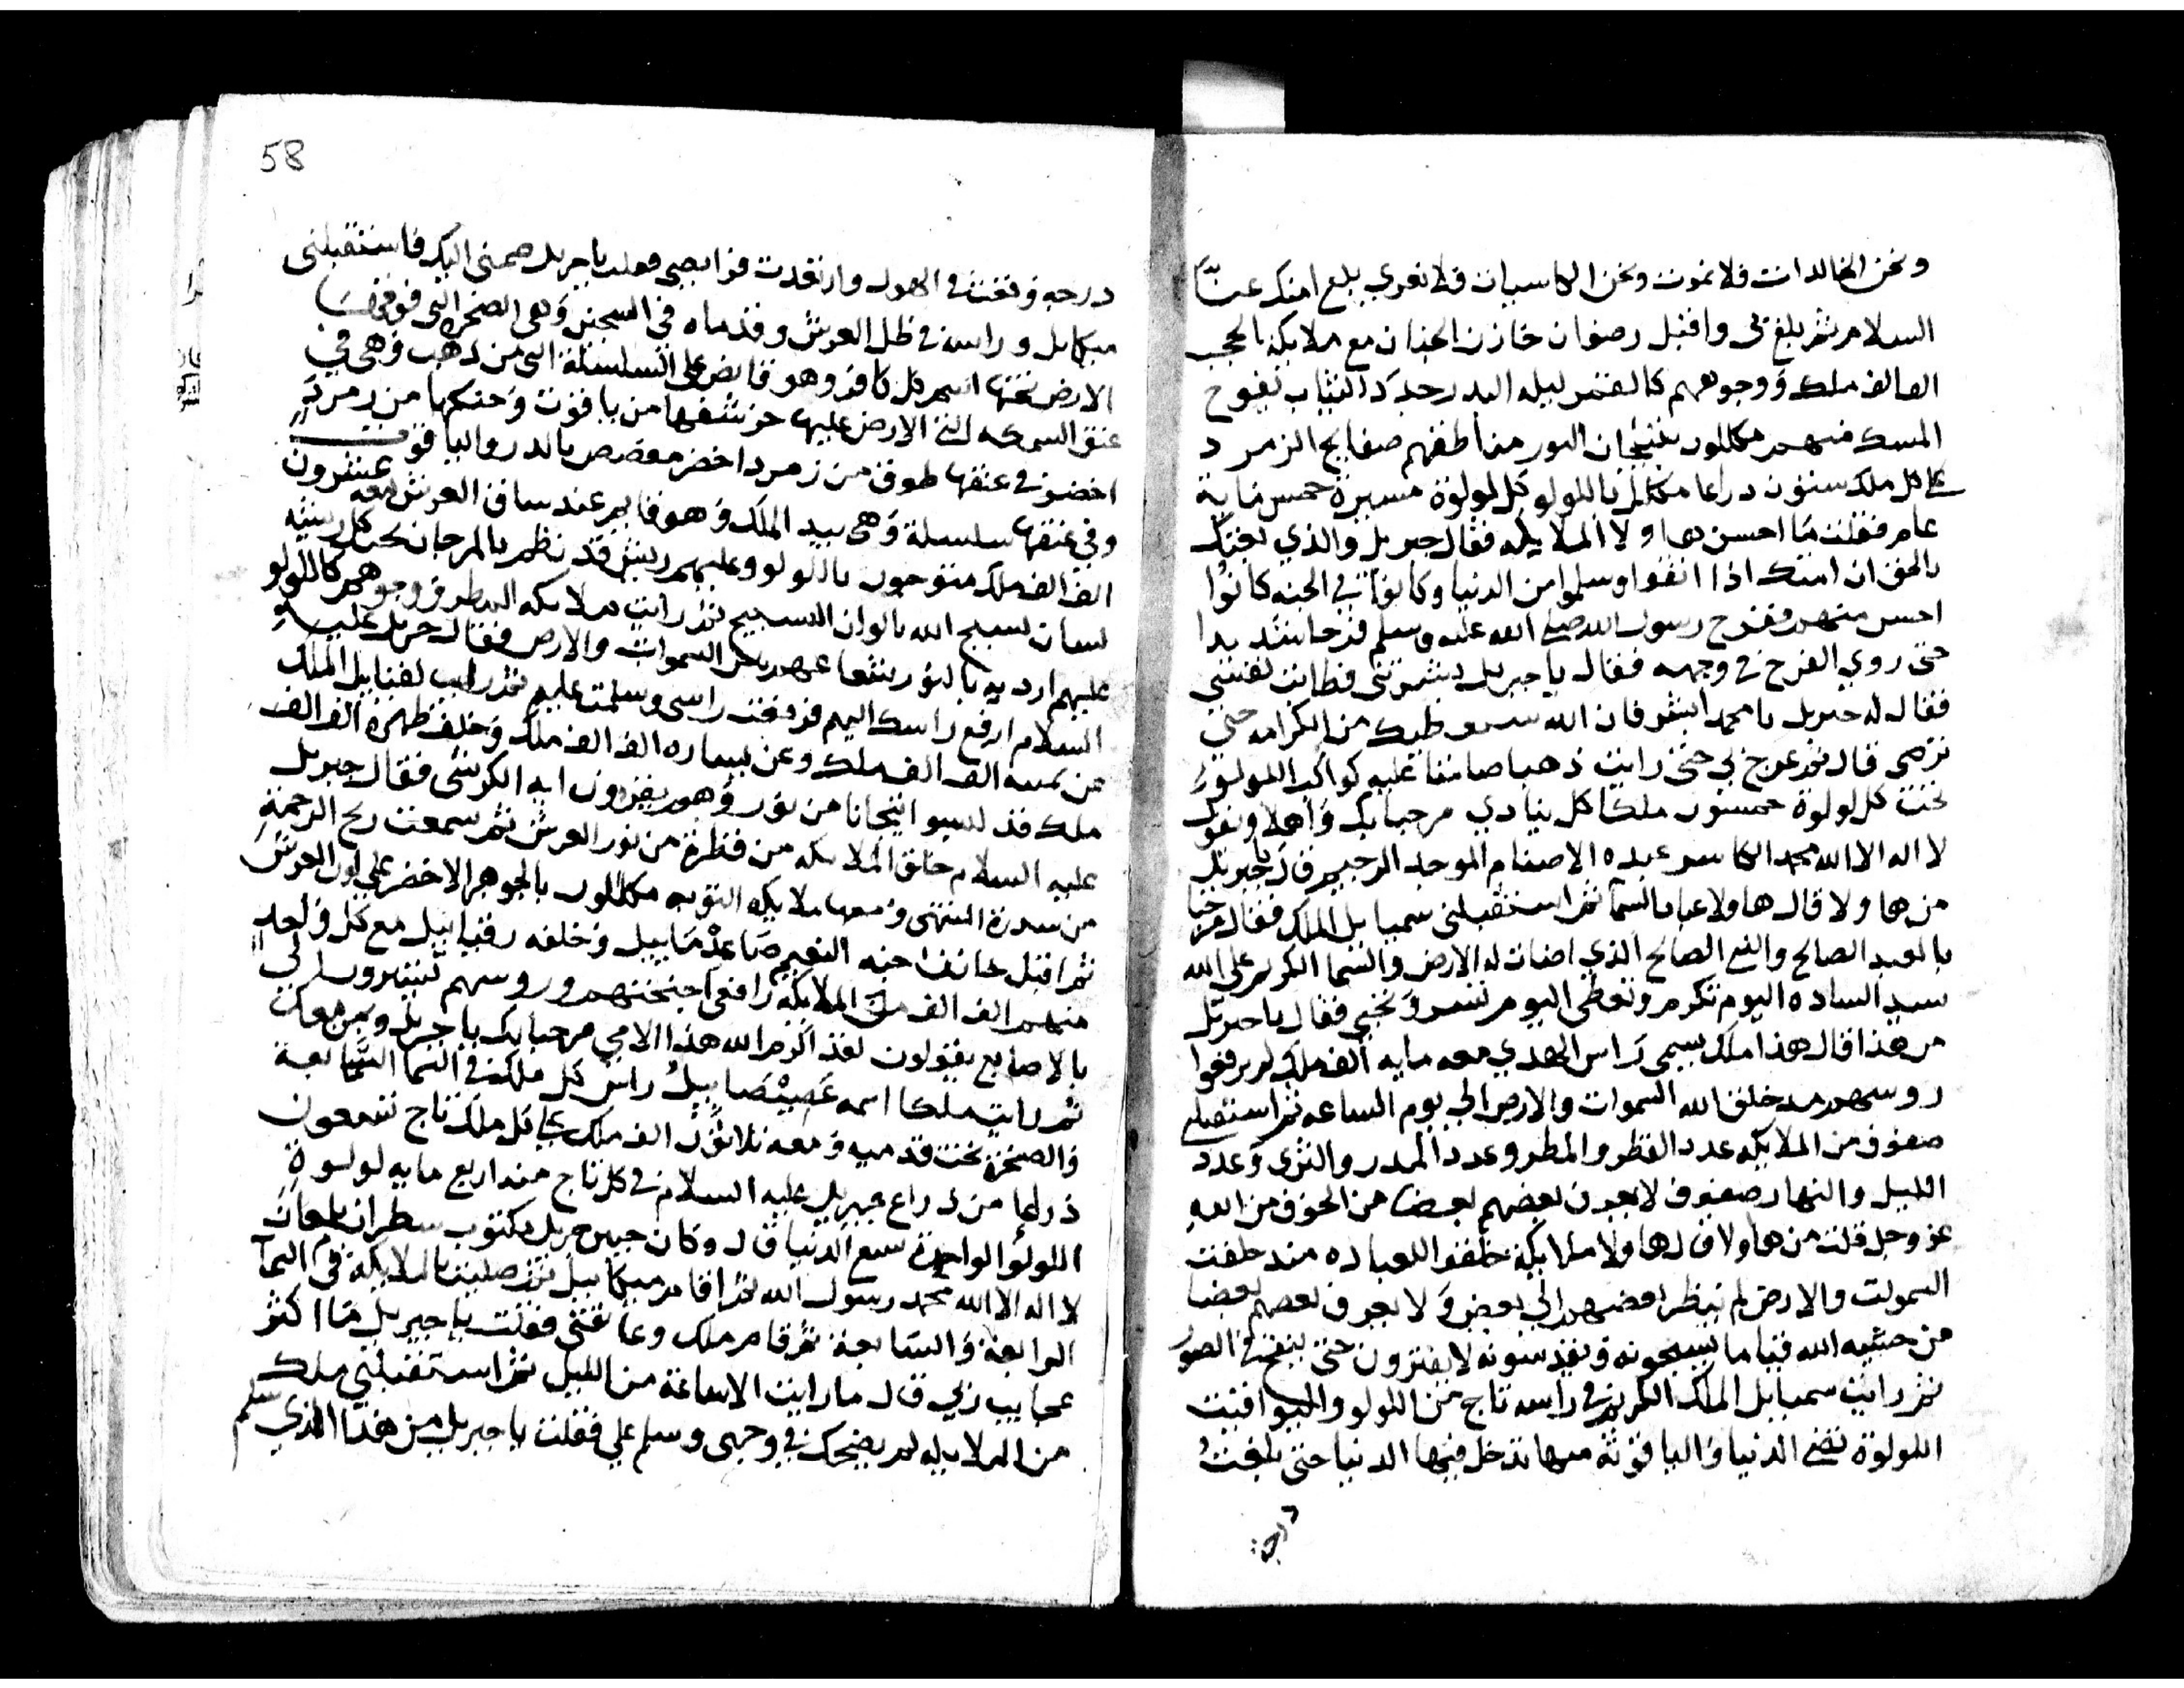 ونحن الخالدات فلا نموت ونحن الكاسيات فلا نعرى بلغ امتك عنّا
السلام ثم بلغ بي واقبل رضوان خازن الجنان مع ملايكة الحجب
الف الف ملك ووجوههم كالقمر ليله البدر جدد الثياب تفوح
المسك منهم مكللون بتيجان النور مناطقهم صفايح الزمرد
على كل ملك ستون دراعا مكللا باللولو كل لولوة مسيرة خمس ماية
عام فقلت ما احسن هاولا الملايكه فقال جبريل والذي بعثك
بالحق ان امتك اذا اتقوا وسلموا من الدنيا وكانوا في الجنه كانوا
احسن منهم ففرح رسول الله صلى الله عليه وسلم فرحا شديدا
حتى روي الفرح في وجهه فقال يا جبريل بشرتني فطابت نفسي
فقال له جبريل يا محمد ابشر فان الله سيعطيك من الكرامه حتى
ترضى قال ثم عرج بي حتى رايت ذهبا صافيا عليه كواكب اللولو
تحت كل لولوة خمسون ملكا كل ينادي مرحبا بك واهلا ونقول
لا اله الا الله محمد الكاسر عبده الاصنام الموحد الرحيم قال يا جبريل
من هاولا قال هاولا عباد السما ثم استقبلني سمياييل الملك فقال مرحبا
بالعبد الصالح والنبي الصالح الذي اضات له الارض والسما الكريم على الله
سيد الساده اليوم تكرم وتعطى اليوم تسر وتحبى فقال يا جبريل
من هذا قال هذا ملك يسمى راس الهدي معه مايه الف ملك لم يرفعوا
روسهم مد خلق الله السموات والارض الى يوم الساعه ثم استقبلني
صفوف من الملايكه عدد القطر والمطر وعدد المدر والثرى وعدد
الليل والنهار صفوف لا يعرف بعضهم بعضا من الخوف من الله
عز وجل قلت من هاولا قال هاولا ملايكة خلقوا للعباده مند خلقت
السموات والارض لم ينظر بعضهم الى بعض ولا يعرف بعضهم بعضا
من خشيه الله قياما يسبحونه ويقدسونه لا يفترون حتى ينفخ في الصور
ثم رايت سمياييل الملك الكريم في راسه تاج من اللولو واليواقيت
اللولوة تضي الدنيا والياقوتة منها تدخل فيها الدنيا حتى بلغت
درجة
58
درجه وقعت في الهول وارتعدت فرايصي فقلت يا جبريل ضمني اليك فاستقبلني
ميكاييل وراسه في ظل العرش وقدماه في السجين وهي الصخره التي فوقها
الارض تحتها اسم كل كافر وهو قابض على السلسلة التي من ذهب وهي في
عنق السمكه التي الارض عليها حرشفها من ياقوت وحنكها من زمرد
اخضر في عنقها طوق من زمرد اخضر مفصص بالدر والياقوت
وفي عنقها سلسلة وهي بيد الملك وهو قايم عند ساق العرش معه عشرون
الف الف ملك متوجون باللولو وعليهم ريش قد نظم بالمرجان تحت كل ريشه
لسان تسبح الله بالوان التسبيح ثم رايت ملايكه المطر ووجوههم كاللولو
عليهم اردية بالنور شعاعهم السموات والارض فقال جبريل عليه
السلام ارفع راسك اليهم فرفعت راسي وسلمت عليهم ثم رايت لفتاييل الملك
عن يمينه الف الف ملك وعن يساره الف الف ملك وخلف ظهره الف الف
ملك قد لبسوا اتيجانا من نور وهم يقرون ايه الكرسي فقال جبريل
عليه السلام خلق الملايكه من قطرة من نور العرش ثم سمعت ريح الرحمة
من سدرة المنتهى ومعها ملايكه التوبه مكللون بالجوهر الاخضر على لون العرش
ثم اقبل خازن جنه النعيم صاعدماييل وخلفه رقياييل مع كل واحد
منهم الف الف من الملايكة رافعى اجنحتهم وروسهم يشيرون لي
بالاصابع يقولون لقد اكرم الله هذا الامي مرحبا بك يا جبريل وبمن معك
ثم رايت ملكا اسمه راس كل ملك في السما السابعة
والصخرة تحت قدميه ومعه ثلاثون الف ملك على كل ملك تاج تسعون
ذراعا من ذراع جبريل عليه السلام في كل تاج منه اربع مايه لولوة
اللولو الواحدة تسع الدنيا قال وكان جبين جبريل مكتوب سطران يلمعان
لا اله الا الله محمد رسول الله ثم اقام ميكاييل ثم صليت بالملايكة في السمآ
الرابعة والسابعة ثم قام ملك وعانقني فقلت يا جبريل ما اكثر
عجايب ربي قال ما رايت الا ساعة من الليل ثم استقبلني ملك
من الملايكه لم يضحك في وجهي وسلم علي فقلت يا جبريل من هذا الذي سلم